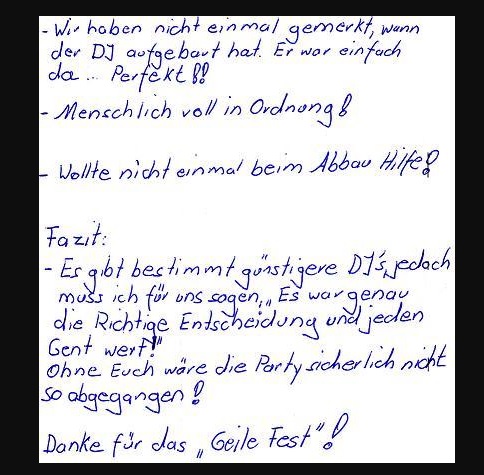 - Wir haben nicht einmal gemerkt, wann
der DJ aufgebaut hat. Er war einfach
da ... Perfekt!!
- Menschlich voll in Ordnung!
- Wollte nicht einmal beim Abbau Hilfe!
Fazit:
- Es gibt bestimmt günstigere DJ's, jedoch
muss ich für uns sagen, „Es war genau
die Richtige Entscheidung und jeden
Cent wert!"
Ohne Euch wäre die Party sicherlich nicht
so abgegangen!
Danke für das „Geile Fest"!